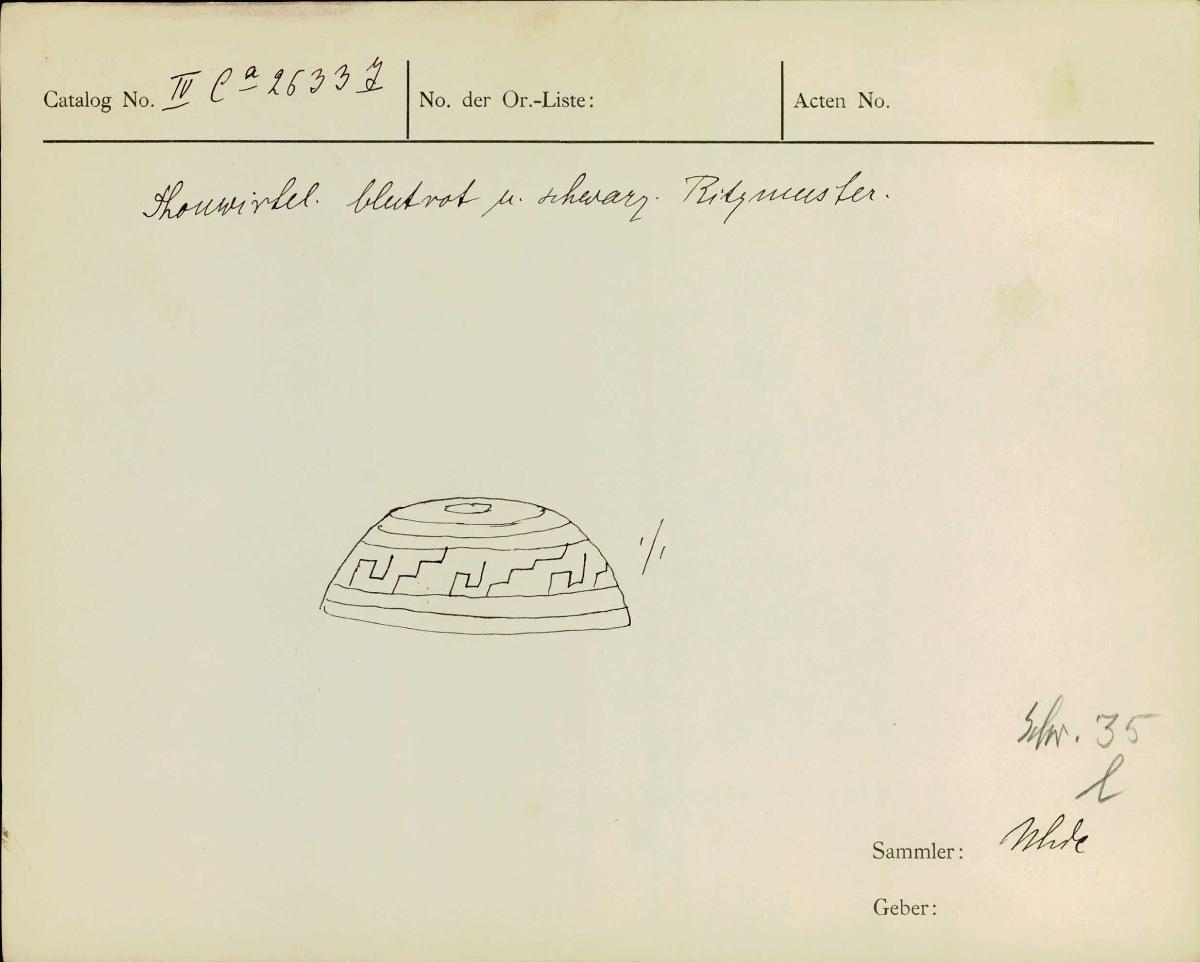 Catalog No. IV Ca 26337
No. der Or.-Liste:
Acten No.
Thonwirtel. blutrot u. schwarz. Ritzmuster.
1/1
Schr. 35
l
Sammler: Uhde
Geber: